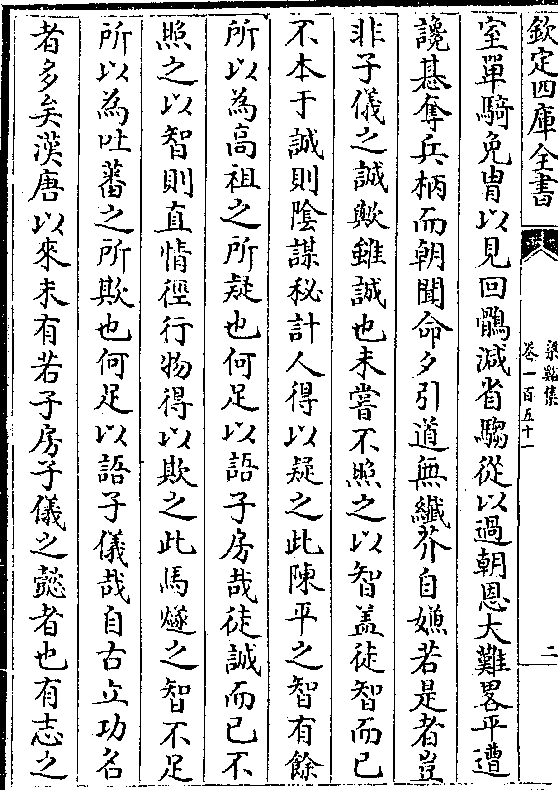 欽定四庫全書
梁谿集
卷一百五十一
二
室單騎免胄以見回鶻減省騶從以過朝恩大難畧平遭
讒惎奪兵柄而朝聞命夕引道無纎芥自嫌若是者豈
非子儀之誠歟雖誠也未嘗不照之以智盖徒智而已
不本于誠則陰謀秘計人得以疑之此陳平之智有餘
所以為高祖之所疑也何足以語子房哉徒誠而已不
照之以智則直情徑行物得以欺之此馬燧之智不足
所以為吐蕃之所欺也何足以語子儀哉自古立功名
者多矣漢唐以來未有若子房子儀之懿者也有志之